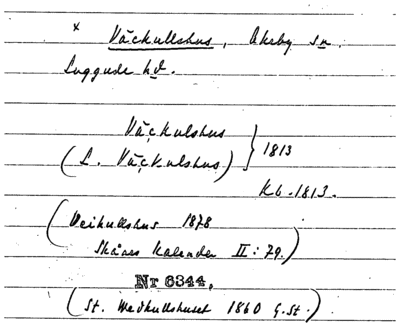 x Väckullshus, Ekeby sn.
Luggude hd.
Väckulshus
(L. Väckulshus) } 1813
Kb. 1813.
(Veikullshus 1878
Skånes Kalender II: 79.)
Nr 6344.
(St. Wedkullshuset 1860 G.St.)